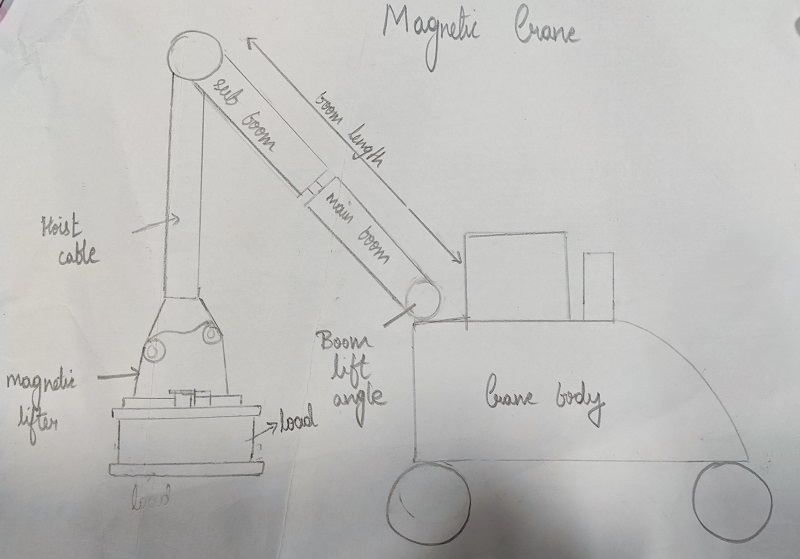 Magnetic Crane
sub boom
boom length
main boom
Hoist
cable
Boom
lift
angle
magnetic
lifter
load
Crane body
load